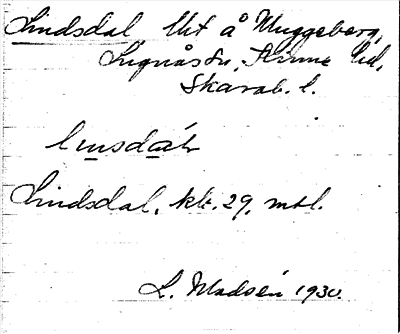 Lindsdal Utt å Muggeberg,
Lugnås sn, Kinne hd,
Skarab. l.
linsdal
Lindsdal, kt. 29, mtl.
L. Madsén 1930.